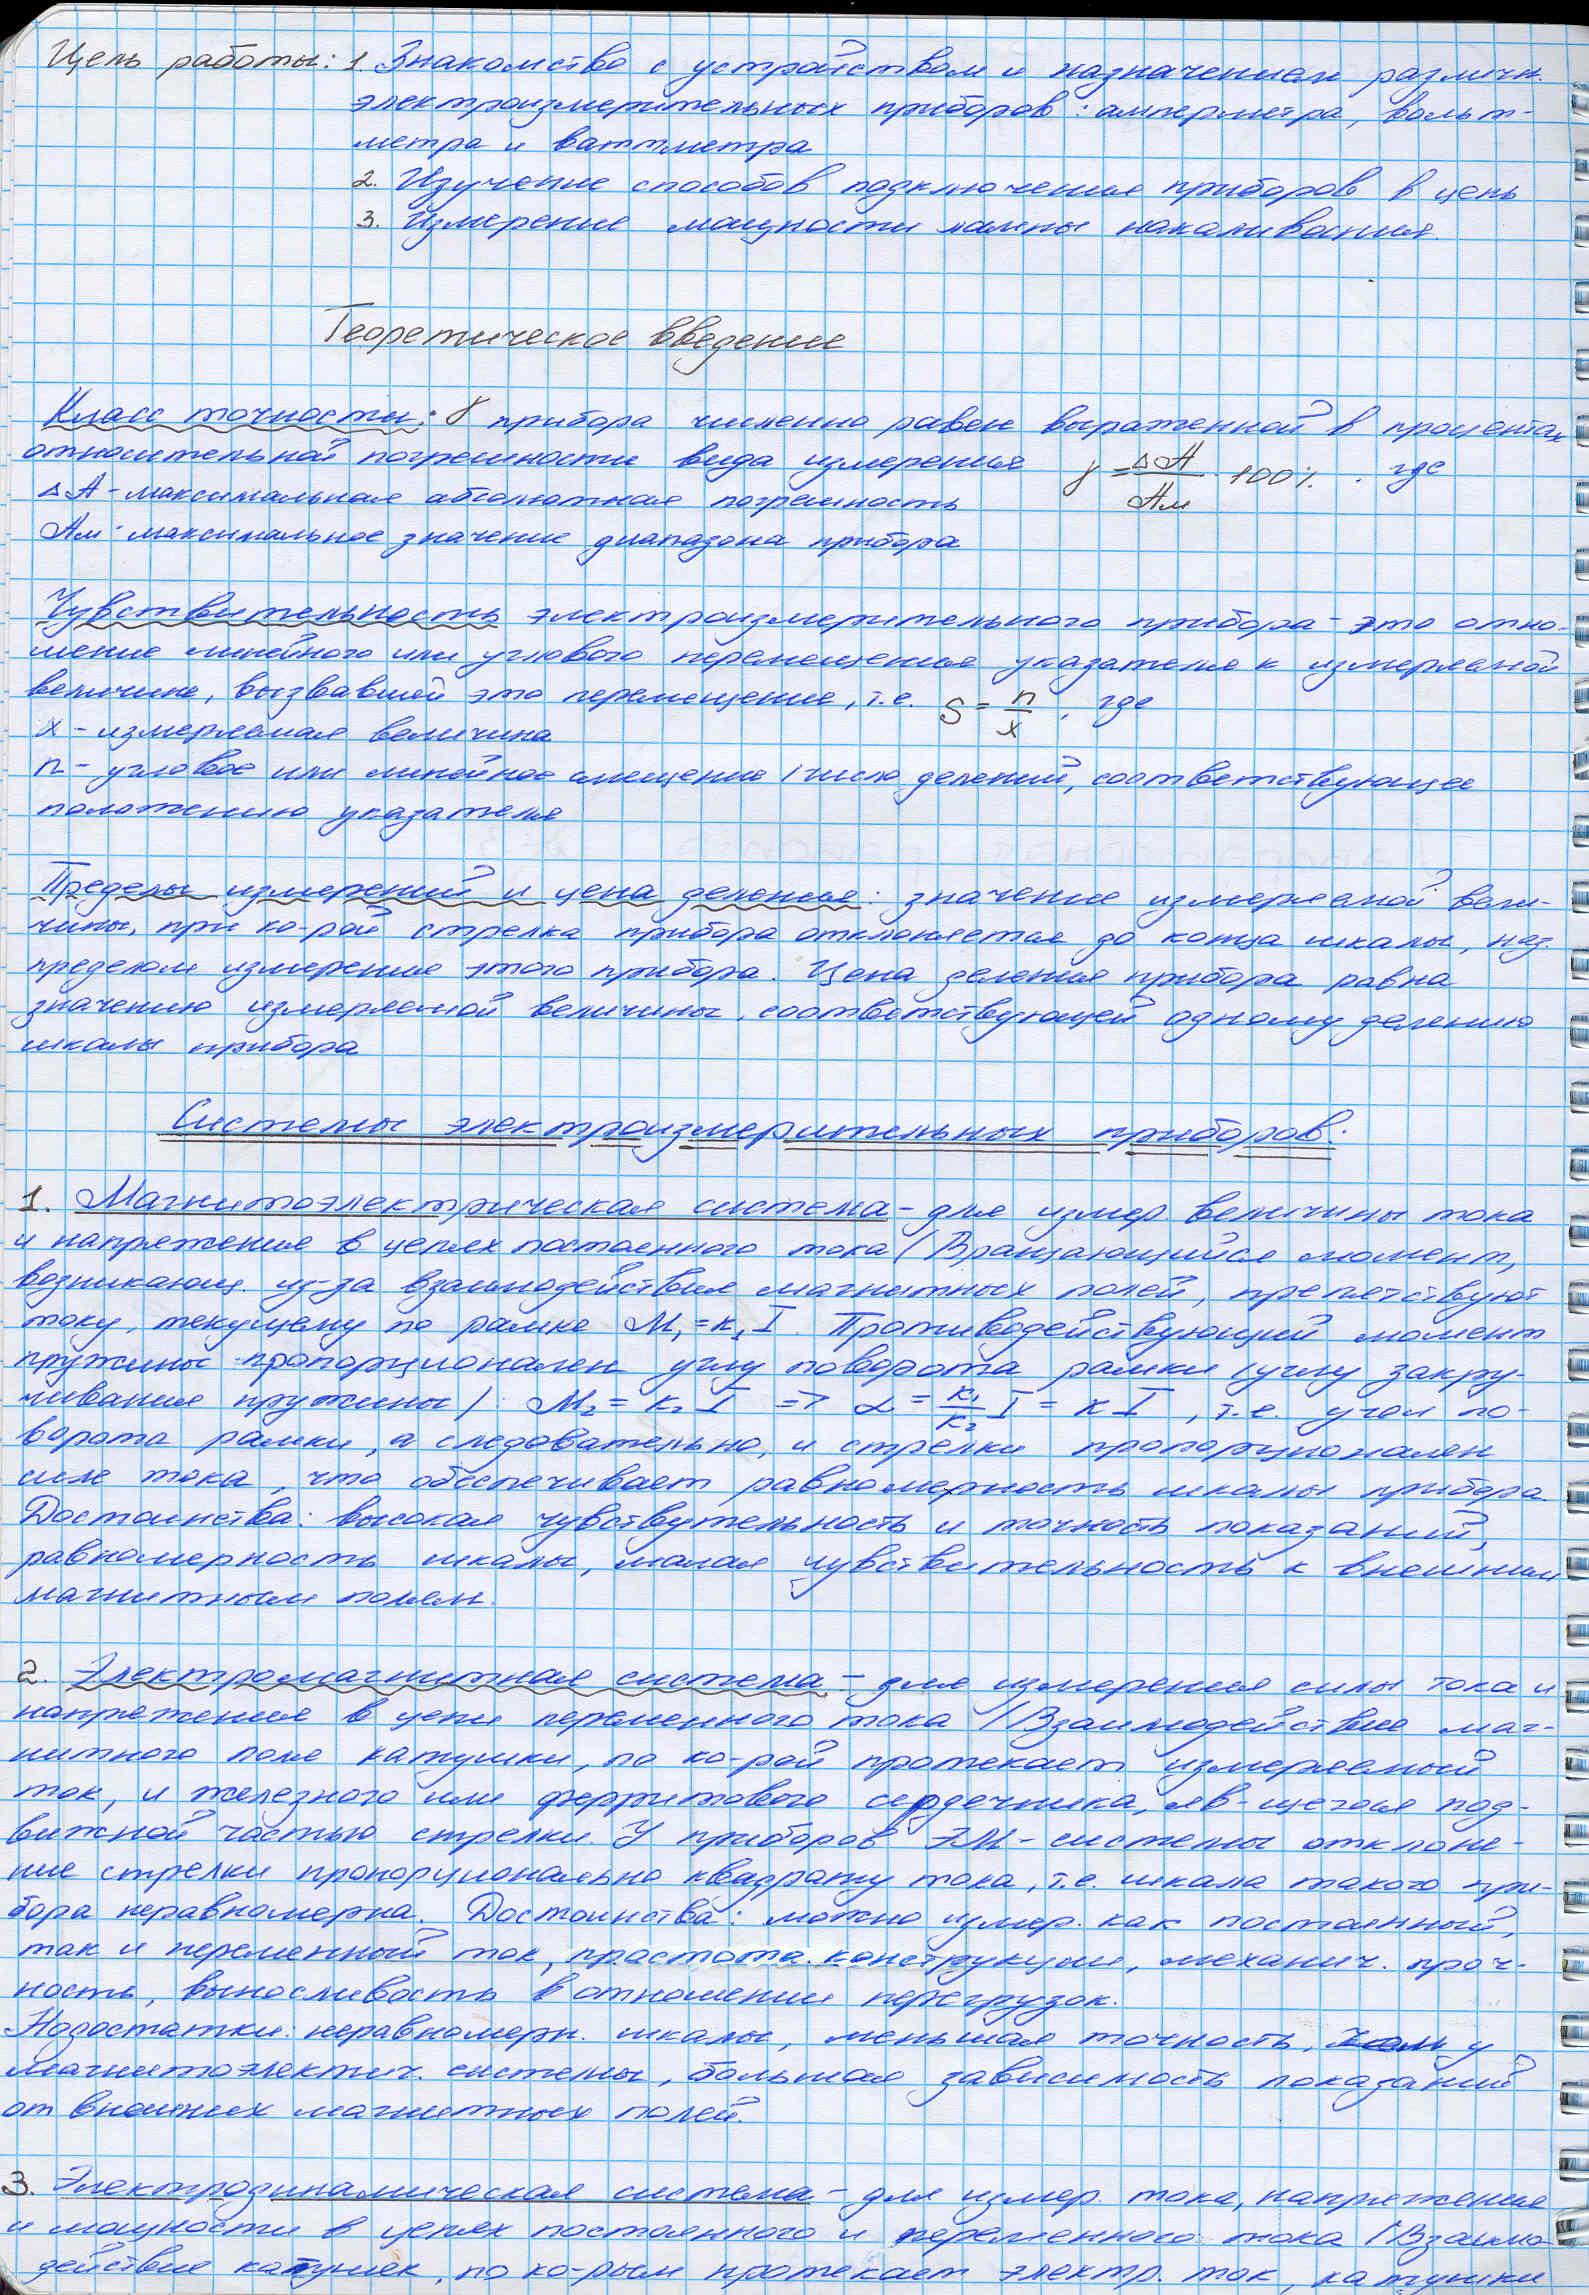 Цель работы: 1. Знакомство с устройством и назначением различн.
электроизмерительных приборов: амперметра, вольт-
метра и ваттметра
2. Изучение способов подключения приборов в цепь
3. Измерение мощности лампы накаливания.
Теоретическое введение
Класс точности: γ прибора численно равен выраженной в процентах
относительной погрешности вида измерения γ = ΔA/Aм · 100%. где
ΔA - максимальная абсолютная погрешность
Aм - максимальное значение диапазона прибора
Чувствительность электроизмерительного прибора - это отно-
шение линейного или углового перемещения указателя к измеряемой
величине, вызвавшей это перемещение, т.е. S = n/x, где
x - измеряемая величина
n - угловое или линейное смещение /число делений, соответствующее
положению указателя
Пределы измерений и цена деления: значение измеряемой вели-
чины, при ко-рой стрелка прибора отклоняется до конца шкалы, наз.
пределом измерение этого прибора. Цена деления прибора равна
значению измеряемой величины, соответствующей одному делению
шкалы прибора
Системы электроизмерительных приборов:
1. Магнитоэлектрическая система - для измер. величины тока
и напряжения в цепях постоянного тока (Вращающийся момент,
возникающ. из-за взаимодействия магнитных полей, препятствуют
току, текущему по рамке M₁=к₁I. Противодействующий момент
пружины пропорционален углу поворота рамки (углу закру-
чивания пружины): M₂ = к₂ I => α = к₁/к₂ I = к I, т.е. угол по-
ворота рамки, а следовательно, и стрелки пропорционален
силе тока, что обеспечивает равномерность шкалы прибора
Достоинства: высокая чувствутельность и точность показаний,
равномерность шкалы, малая чувствительность к внешним
магнитным полям.
2. Электромагнитная система - для измерения силы тока и
напряжения в цепи переменного тока /Взаимодействие маг-
нитного поля катушки, по ко-рой протекает измеряемый
ток, и железного или ферритового сердечника, яв-щегося под-
вижной частью стрелки. У приборов ЭМ-системы отклоне-
ние стрелки пропорционально квадрату тока, т.е. шкала такого при-
бора неравномерна. Достоинства: можно измер. как постоянный,
так и переменный ток, простота конструкции, механич. проч-
ность, выносливость в отношении перегрузок.
Недостатки: неравномерн. шкалы, меньшая точность, чем у
магнитоэлектич. системы, большая зависимость показаний
от внешних магнитных полей.
3. Электродинамическая система - для измер. тока, напряжения
и мощности в цепях постоянного и переменного тока (Взаимо-
действие катушек, по ко-рым протекает электр. ток, катушки